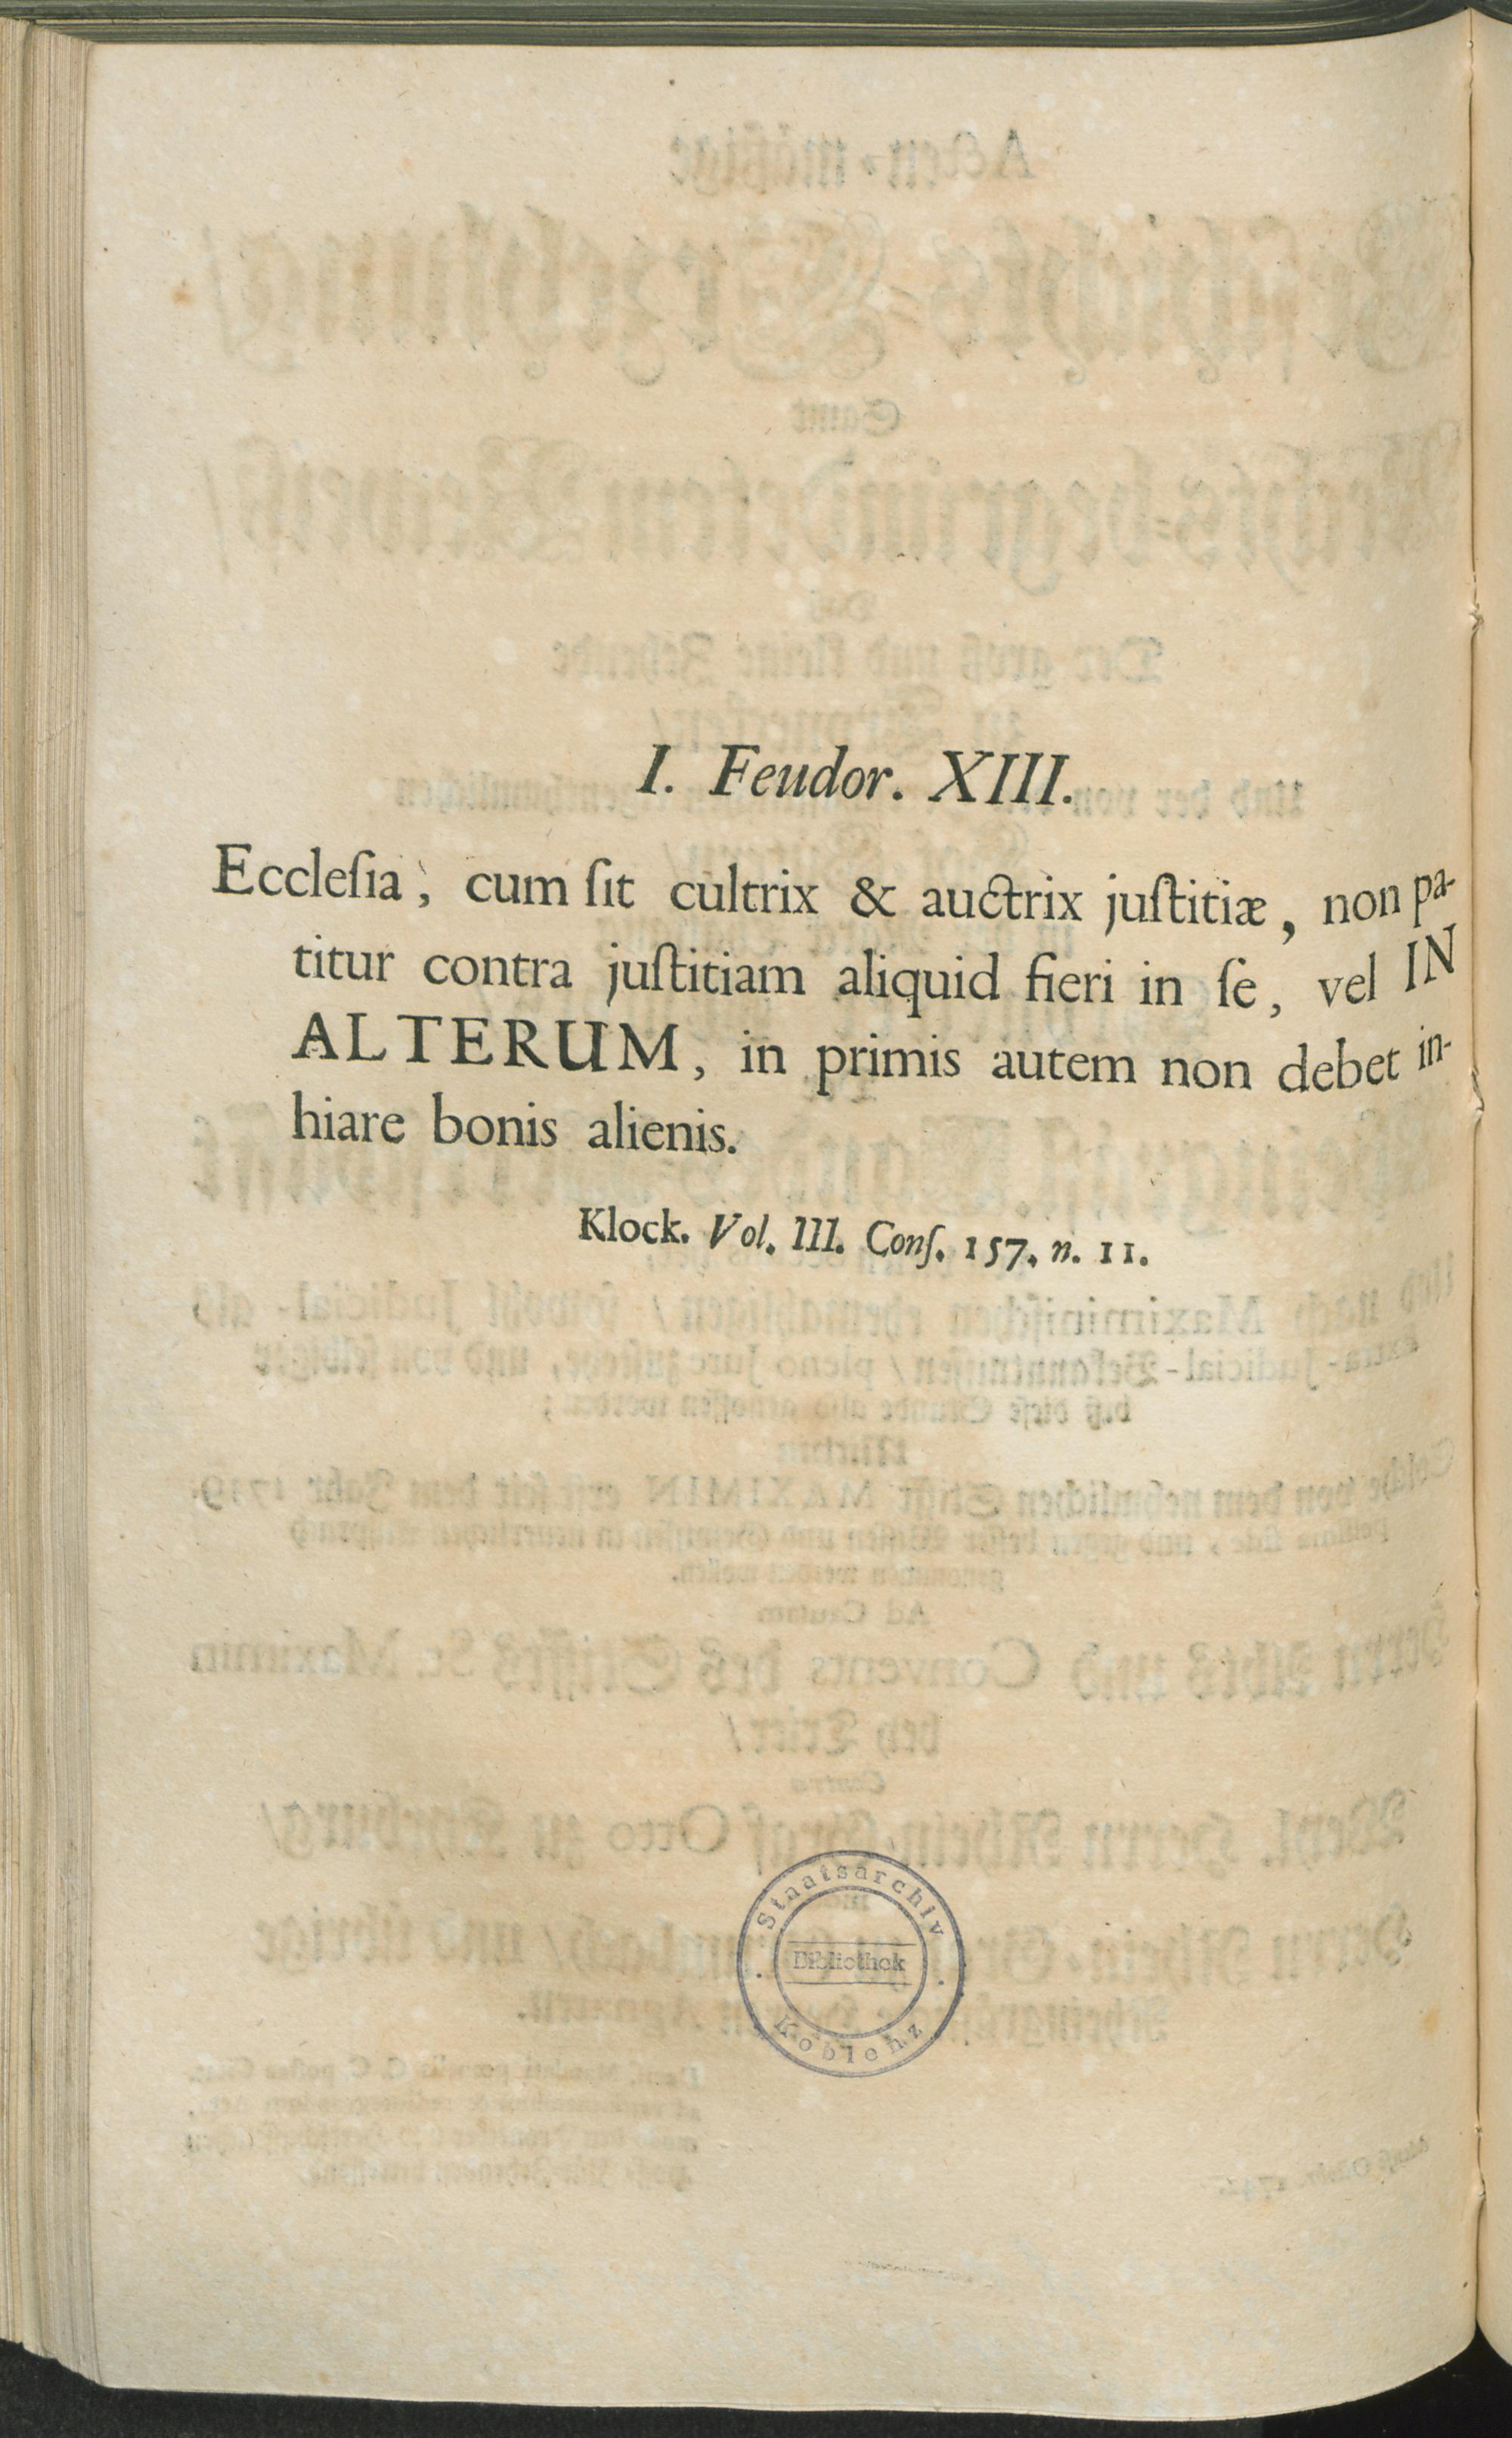 I. Feudor. XIII.
Eccleſia, cum ſit cultrix & auctrix juſtitiæ, non pa-
titur contra juſtitiam aliquid fieri in ſe, vel IN
ALTERUM, in primis autem non debet in-
hiare bonis alienis.
Klock. Vol. III. Conſ. 157. n. 11.
Staatsarchiv
Bibliothek
Koblenz